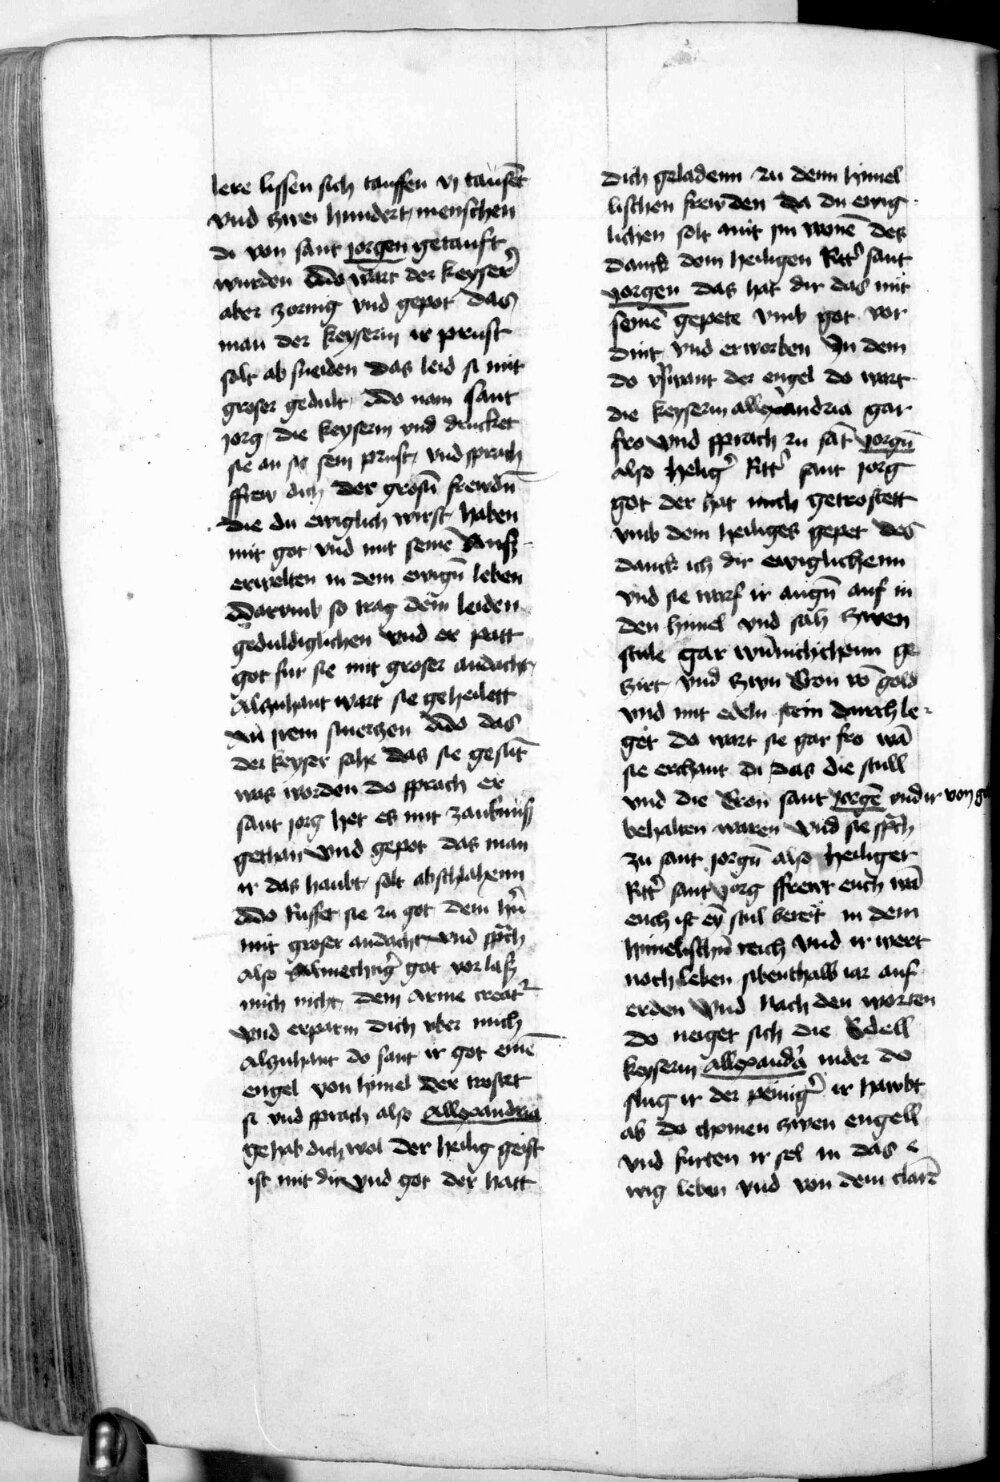 lere lissen sich tauffen vj tausēt
vnd zwei hundert menschen
di von sant jorgen getauft
wurden Do wart der keyser
aber zornig vnd gepot das
man der keyserin ir prust
solt ab sneiden das leid si mit
groser gedult Do nam sant
jorg die keyserin vnd drucket
sie an sein prust vnd sprach
ffrew dich der grosū frewdn
die du ewiglich wirst haben
mit got vnd mit seinē
erwelten in dem ewigū leben
Darvmb so trag dein leiden
geduldiglichen vnd er patt
got fur sie mit groser andacht
Alzuhant wart sie geheilett
irem smerczen Do das
der keyser sahe das sie gesūt
was worden do sprach er
sant jorg het es mit zaubnuss
gethan vnd gepot das man
ir das haubt solt abschlahenn
Do ruffet sie zu got dem hn̄
mit groser andacht vnd spch
also almechtig got vorlass
mich nicht dem arme creatr
vnd erparm dich vber mich
Alzuhant do sant ir got eine
engel von himel der trostet
si vnd sprach also Allexandria
gehab dich wol der heilig geist
ist mit dir vnd got der hatt
dich geladenn zu denn himel
lischen frewden da du ewig
lichen solt mit im wonē des
danck dem heiligen Ritt sant
yorgen das hat dir das mit
seinē gepete vmb got vor
dint vnd erworben In dem
do vswant der engel do wart
die keyserin allexandria gar
fro vnd sprach zu sāt yorgn̄
also heilig Ritt sant jorg
got der hat mich getrostett
vmb dem heiliges gepet des
danck ich dir ewiglichenn
vnd sie warf ir augn̄ auf in
den himel vnd sah zwen
stule gar wūnichlichenn ge
zirt vnd zwu kron vō gold
vnd mit edeln stein durchle-
get do wart sie gar fro wā
sie erchant di das die stull
vnd die kron sant jorgē vnd ir von g
behalten waren vnd sie spch
zu sant jorgn̄ also heiliger
Ritt sant yorg ffrewt euch wā
euch ist ey stul bereit in dem
himelischn̄ reich vnd ir wert
noch leben sibenthalb iar auf
erden vnd nach den worten
do neiget sich die Edell
keyserin allexandā nider do
slug ir der peinig ir hawbt
ab do chomen zwen engell
vnd furten ir sel in das e
wig leben vnd von dem clarē